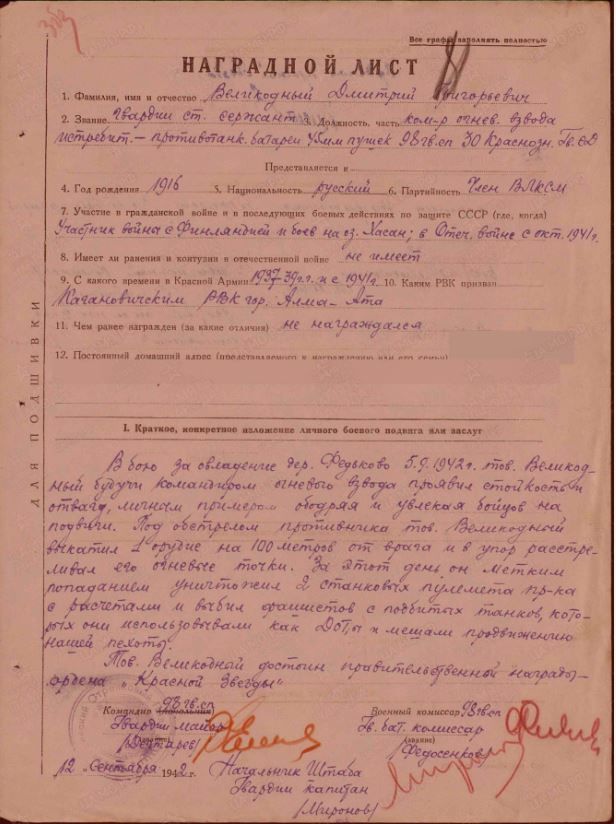 Все графы заполнять полностью
НАГРАДНОЙ ЛИСТ
1. Фамилия, имя и отчество Великодный Дмитрий Григорьевич
2. Звание Гвардии ст. сержант 3. Должность, часть ком-р огнев. взвода
истребит.-противотанк. батареи 45мм пушек 98 гв.сп 30 Краснозн. Гв.СД
Представляется к
4. Год рождения 1916 5. Национальность русский 6. Партийность Член ВЛКСМ
7. Участие в гражданской войне и в последующих боевых действиях по защите СССР (где, когда)
Участник войны с Финляндией и боев на оз. Хасан; в Отеч. войне с окт. 1941г.
8. Имеет ли ранения и контузии в отечественной войне не имеет
9. С какого времени в Красной Армии 1937-39г.г. и с 1941г. 10. Каким РВК призван
Кагановичским РВК гор. Алма-Ата
11. Чем ранее награжден (за какие отличия) не награждался
12. Постоянный домашний адрес (представляемого к награждению или его семьи)
ДЛЯ ПОДШИВКИ
I. Краткое, конкретное изложение личного боевого подвига или заслуг
В бою за овладение дер. Федьково 5.9.1942г. тов. Великод-
ный будучи командиром огневого взвода проявил стойкость и
отвагу, личным примером ободряя и увлекая бойцов на
подвиги. Под обстрелом противника тов. Великодный
выкатил 1 орудие на 100 метров от врага и в упор расстре-
ливал его огневые точки. За этот день он метким
попаданием уничтожил 2 станковых пулемета пр-ка
с расчетами и выбил фашистов с подбитых танков, кото-
рых они использовывали как ДОТ,ы и мешали продвижению
нашей пехоты.
Тов. Великодный достоин правительственной награды-
ордена "Красной Звезды"
Командир 98 гв.сп Военный комиссар 98 гв.сп
Гвардии майор Гв. бат. комиссар
(звание)
/Дегтярев/ /Федосенков/
12 "Сентября 1942 г. Начальник Штаба
Гвардии капитан
/Миронов/